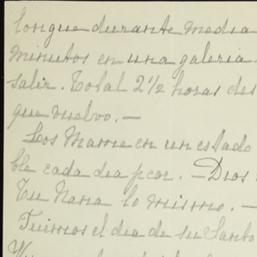 longue durante media
minutos en una galeria
salir. Total 2½ horas des
que vuelvo.—
Los Mame en un estado
ble cada dia peor.—Dios
Tu Nana lo mismo.—
Fuimos el dia de su Santo